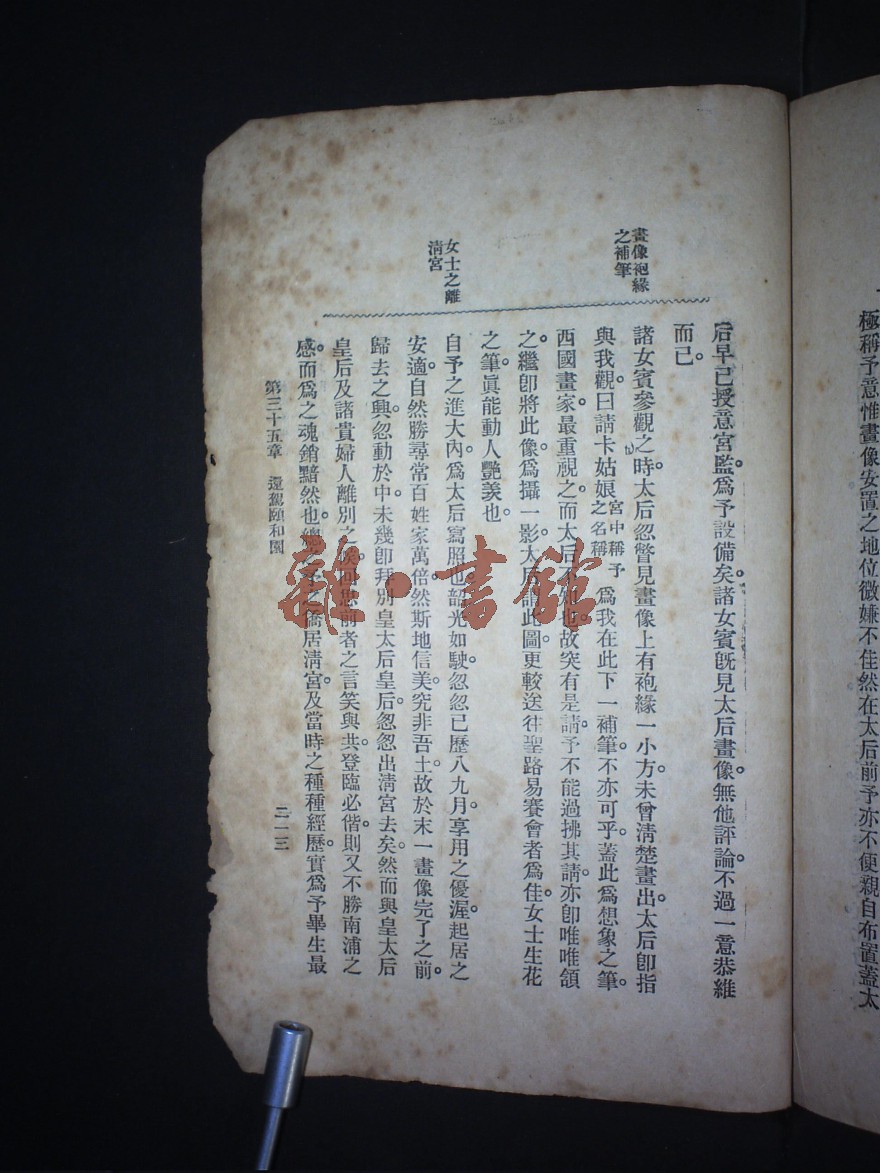 極稱予意惟畫像安置之地位微嫌不佳然在太后前予亦不便親自布置蓋太
畫像袍緣
之補筆
女士之離
清宮
后早已授意宮監。爲予設備矣。諸女賓既見太后畫像。無他評論。不過一意恭維
而已。
諸女賓參觀之時。太后忽瞥見畫像上有袍緣一小方。未曾清楚畫出。太后卽指
與我觀。曰請卡姑娘宮中稱予之名稱爲我在此下一補筆。不亦可乎。蓋此爲想象之筆。
西國畫家最重視之。而太后不知也。故突有是請。予不能過拂其請。亦卽唯唯頷
之。繼卽將此像爲攝一影。太后謂此圖更較送往聖路易賽會者爲佳。女士生花
之筆。眞能動人艷羨也。
自予之進大內。爲太后寫照也。韶光如駛。忽忽已歷八九月。享用之優渥。起居之
安適。自然勝尋常百姓家萬倍。然斯地信美。究非吾土。故於末一畫像完了之前。
歸去之興。忽動於中。未幾卽拜別皇太后皇后。怱怱出清宮去矣。然而與皇太后
皇后及諸貴婦人離別之候。回思前者之言笑與共。登臨必偕。則又不勝南浦之
感。而爲之魂銷黯然也。予之僑居清宮。及當時之種種經歷。實爲予畢生最
第三十五章 還駕頤和園
二一三
雜·書館